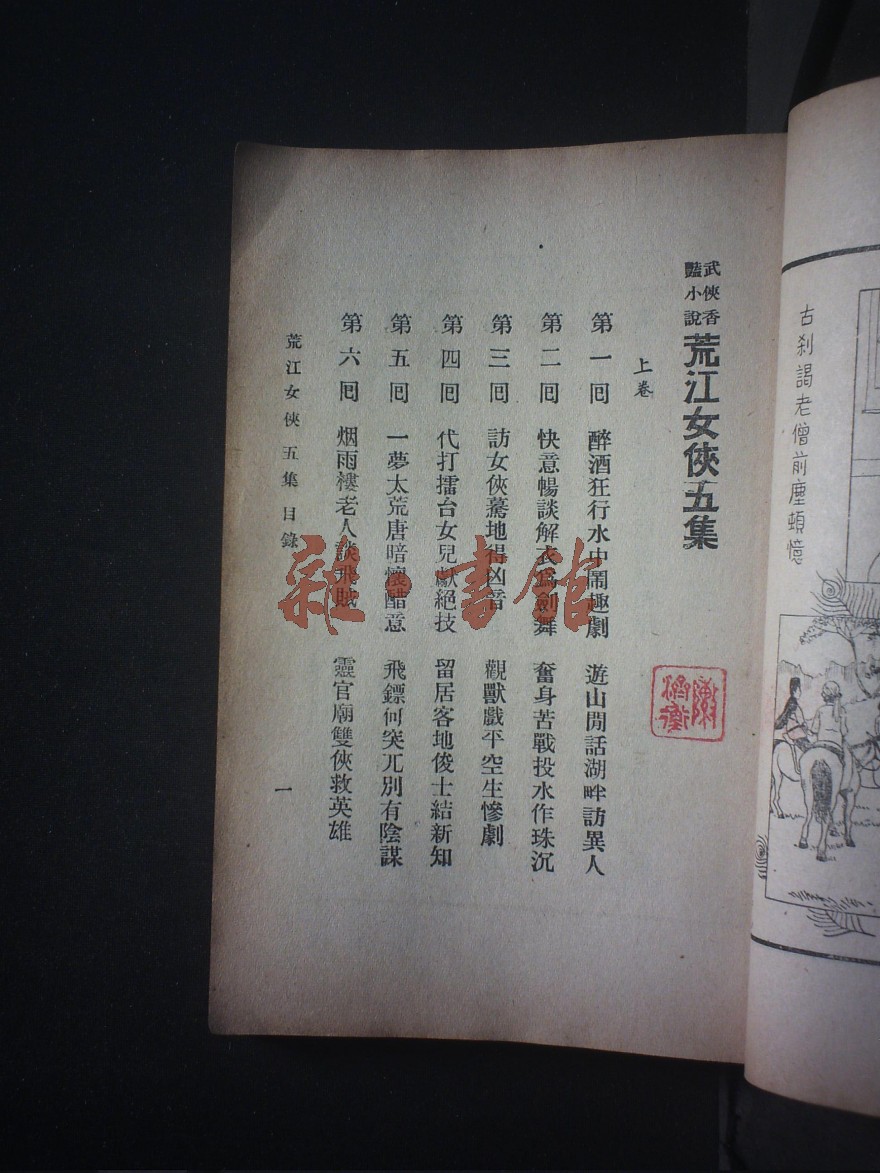 古刹謁老僧前塵頓憶
武俠香
豔小說
荒江女俠五集
上卷
第一囘 醉酒狂行水中鬧趣劇 遊山閒話湖畔訪異人
第二囘 快意暢談解衣爲劍舞 奮身苦戰投水作珠沉
第三囘 訪女俠驀地得凶音 觀獸戲平空生慘劇
第四囘 代打擂台女兒獻絕技 留居客地俊士結新知
第五囘 一夢太荒唐暗懷醋意 飛鏢何突兀別有陰謀
第六囘 烟雨樓老人談飛賊 靈官廟雙俠救英雄
荒江女俠 五集 目錄
一
雜·書館